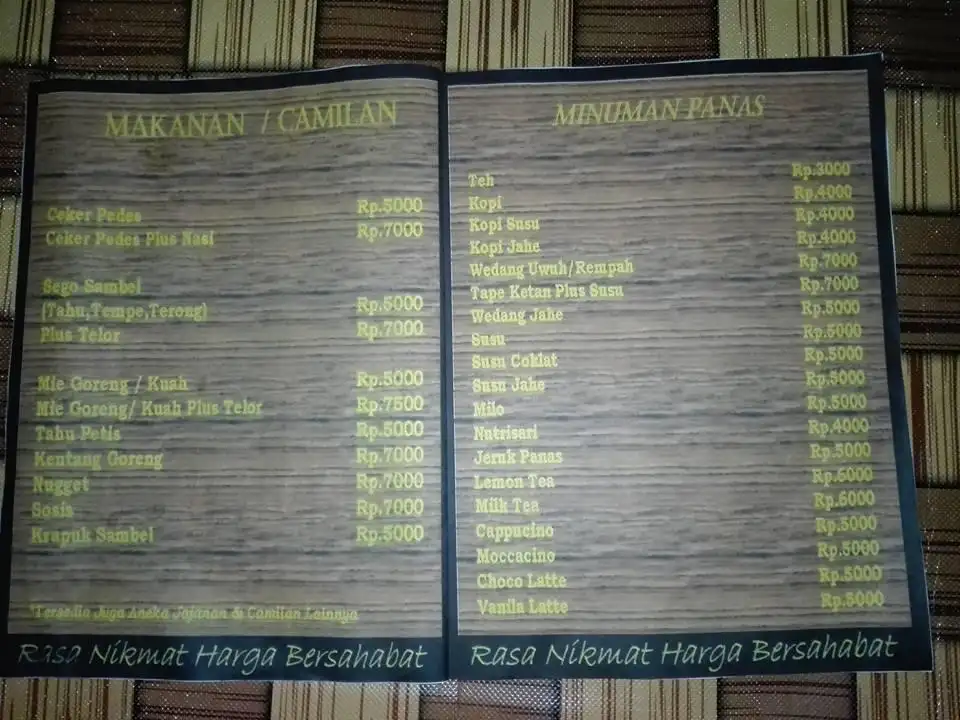 MAKANAN / CAMILAN
Ceker Pedes Rp.5000
Ceker Pedes Plus Nasi Rp.7000
Sego Sambel
(Tahu,Tempe,Terong) Rp.5000
Plus Telor Rp.7000
Mie Goreng / Kuah Rp.5000
Mie Goreng/ Kuah Plus Telor Rp.7500
Tahu Petis Rp.5000
Kentang Goreng Rp.7000
Nugget Rp.7000
Sosis Rp.7000
Krapuk Sambel Rp.5000
*Tersedia Juga Aneka Jajanan & Camilan Lainnya
Rasa Nikmat Harga Bersahabat
MINUMAN PANAS
Teh Rp.3000
Kopi Rp.4000
Kopi Susu Rp.4000
Kopi Jahe Rp.4000
Wedang Uwuh/Rempah Rp.7000
Tape Ketan Plus Susu Rp.7000
Wedang Jahe Rp.5000
Susu Rp.5000
Susu Coklat Rp.5000
Susu Jahe Rp.5000
Milo Rp.5000
Nutrisari Rp.4000
Jeruk Panas Rp.5000
Lemon Tea Rp.6000
Milk Tea Rp.6000
Cappucino Rp.5000
Moccacino Rp.5000
Choco Latte Rp.5000
Vanila Latte Rp.5000
Rasa Nikmat Harga Bersahabat